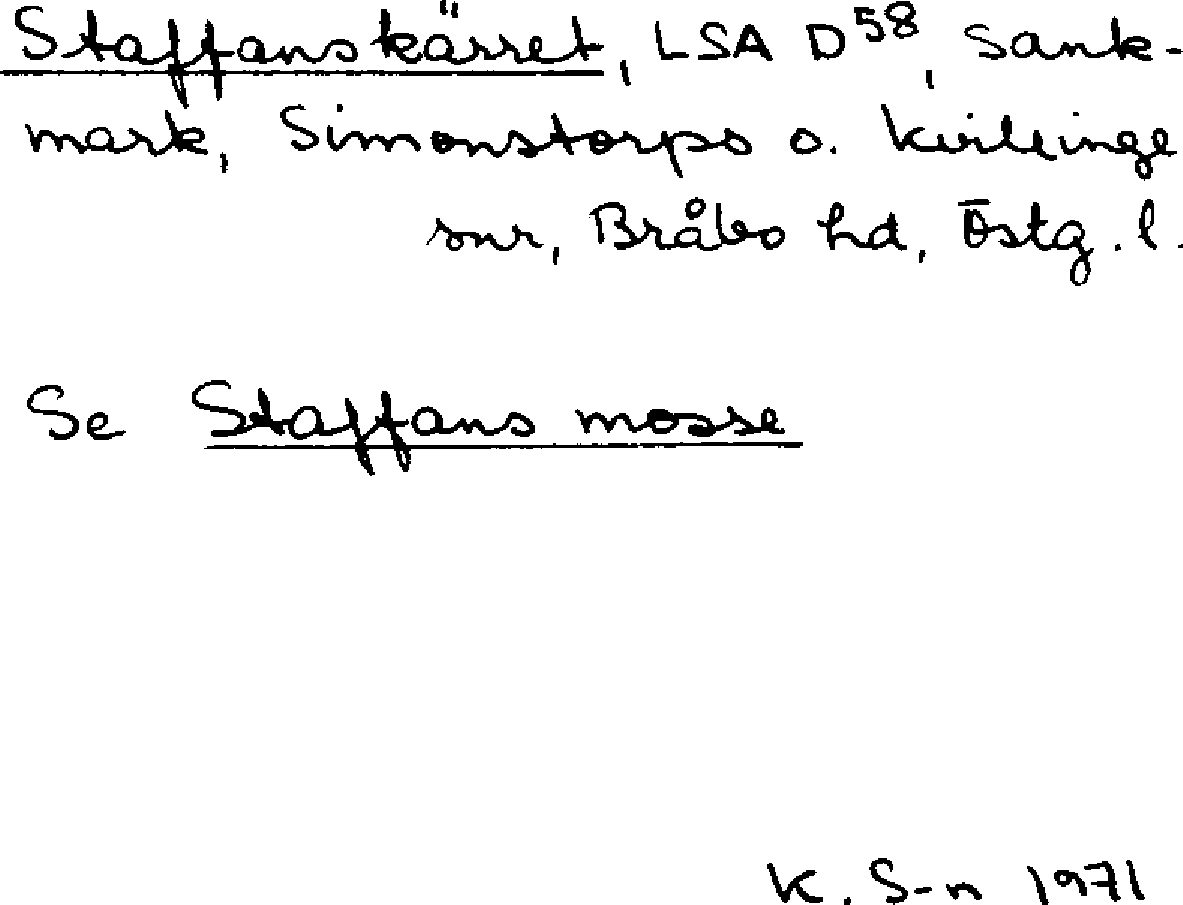 Staffanskärret, LSA D58, Sank-
mark, Simonstorps o. Kvillinge
snr, Bråbo hd, Östg. l.
Se Staffans mosse
K. S-n 1971